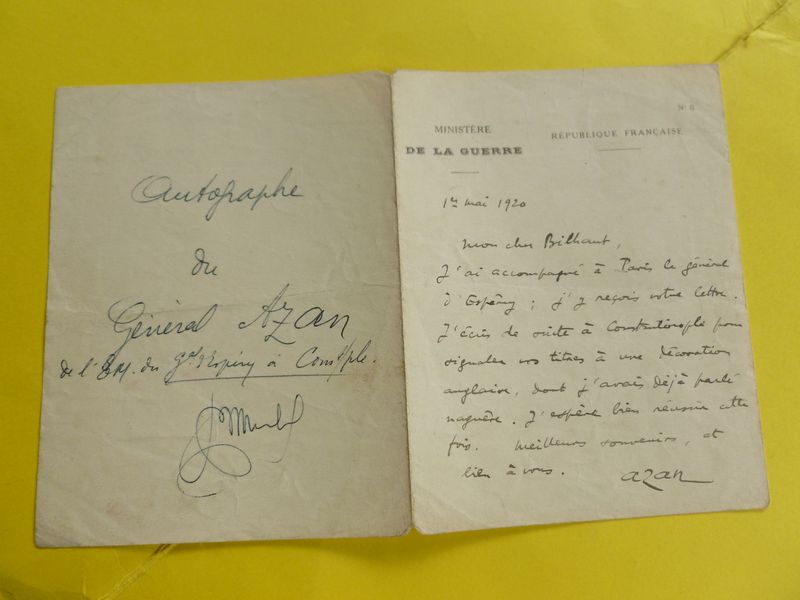 Autographe
du
Général AZAN
de l'EM. du Gal d'Espérey à Const/ple.
N° 8
MINISTÈRE
DE LA GUERRE
RÉPUBLIQUE FRANÇAISE
1er mai 1920
Mon cher Bilhaut,
J'ai accompagné à Paris le général
d'Espérey ; j'y reçois votre lettre.
J'écris de suite à Constantinople pour
signaler vos titres à une décoration
anglaise, dont j'avais déjà parlé
naguère. J'espère bien réussir cette
fois. Meilleurs souvenirs, et
bien à vous.
AZAN